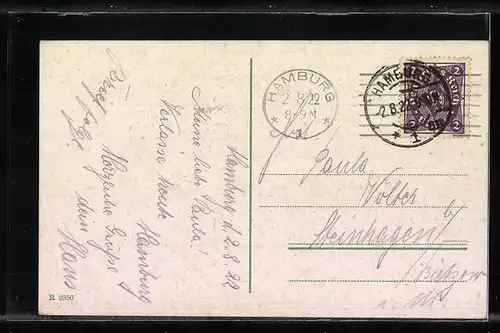 Hamburg d. 2.8.22
Meine liebe Paula!
Verlasse heute
Hamburg
Brief folgt
Herzliche Grüße
dein
Hans
R 2350
HAMBURG
2.8.22
8-9N
* 1 *
HAMBURG
2.8.22
* 1
2
2
Paula
Wölter
Steinhagen b/
Bützow
i. M.